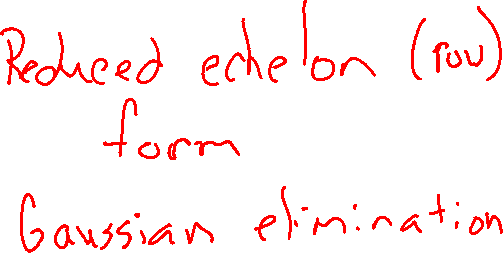 Reduced echelon (row)
form
Gaussian elimination